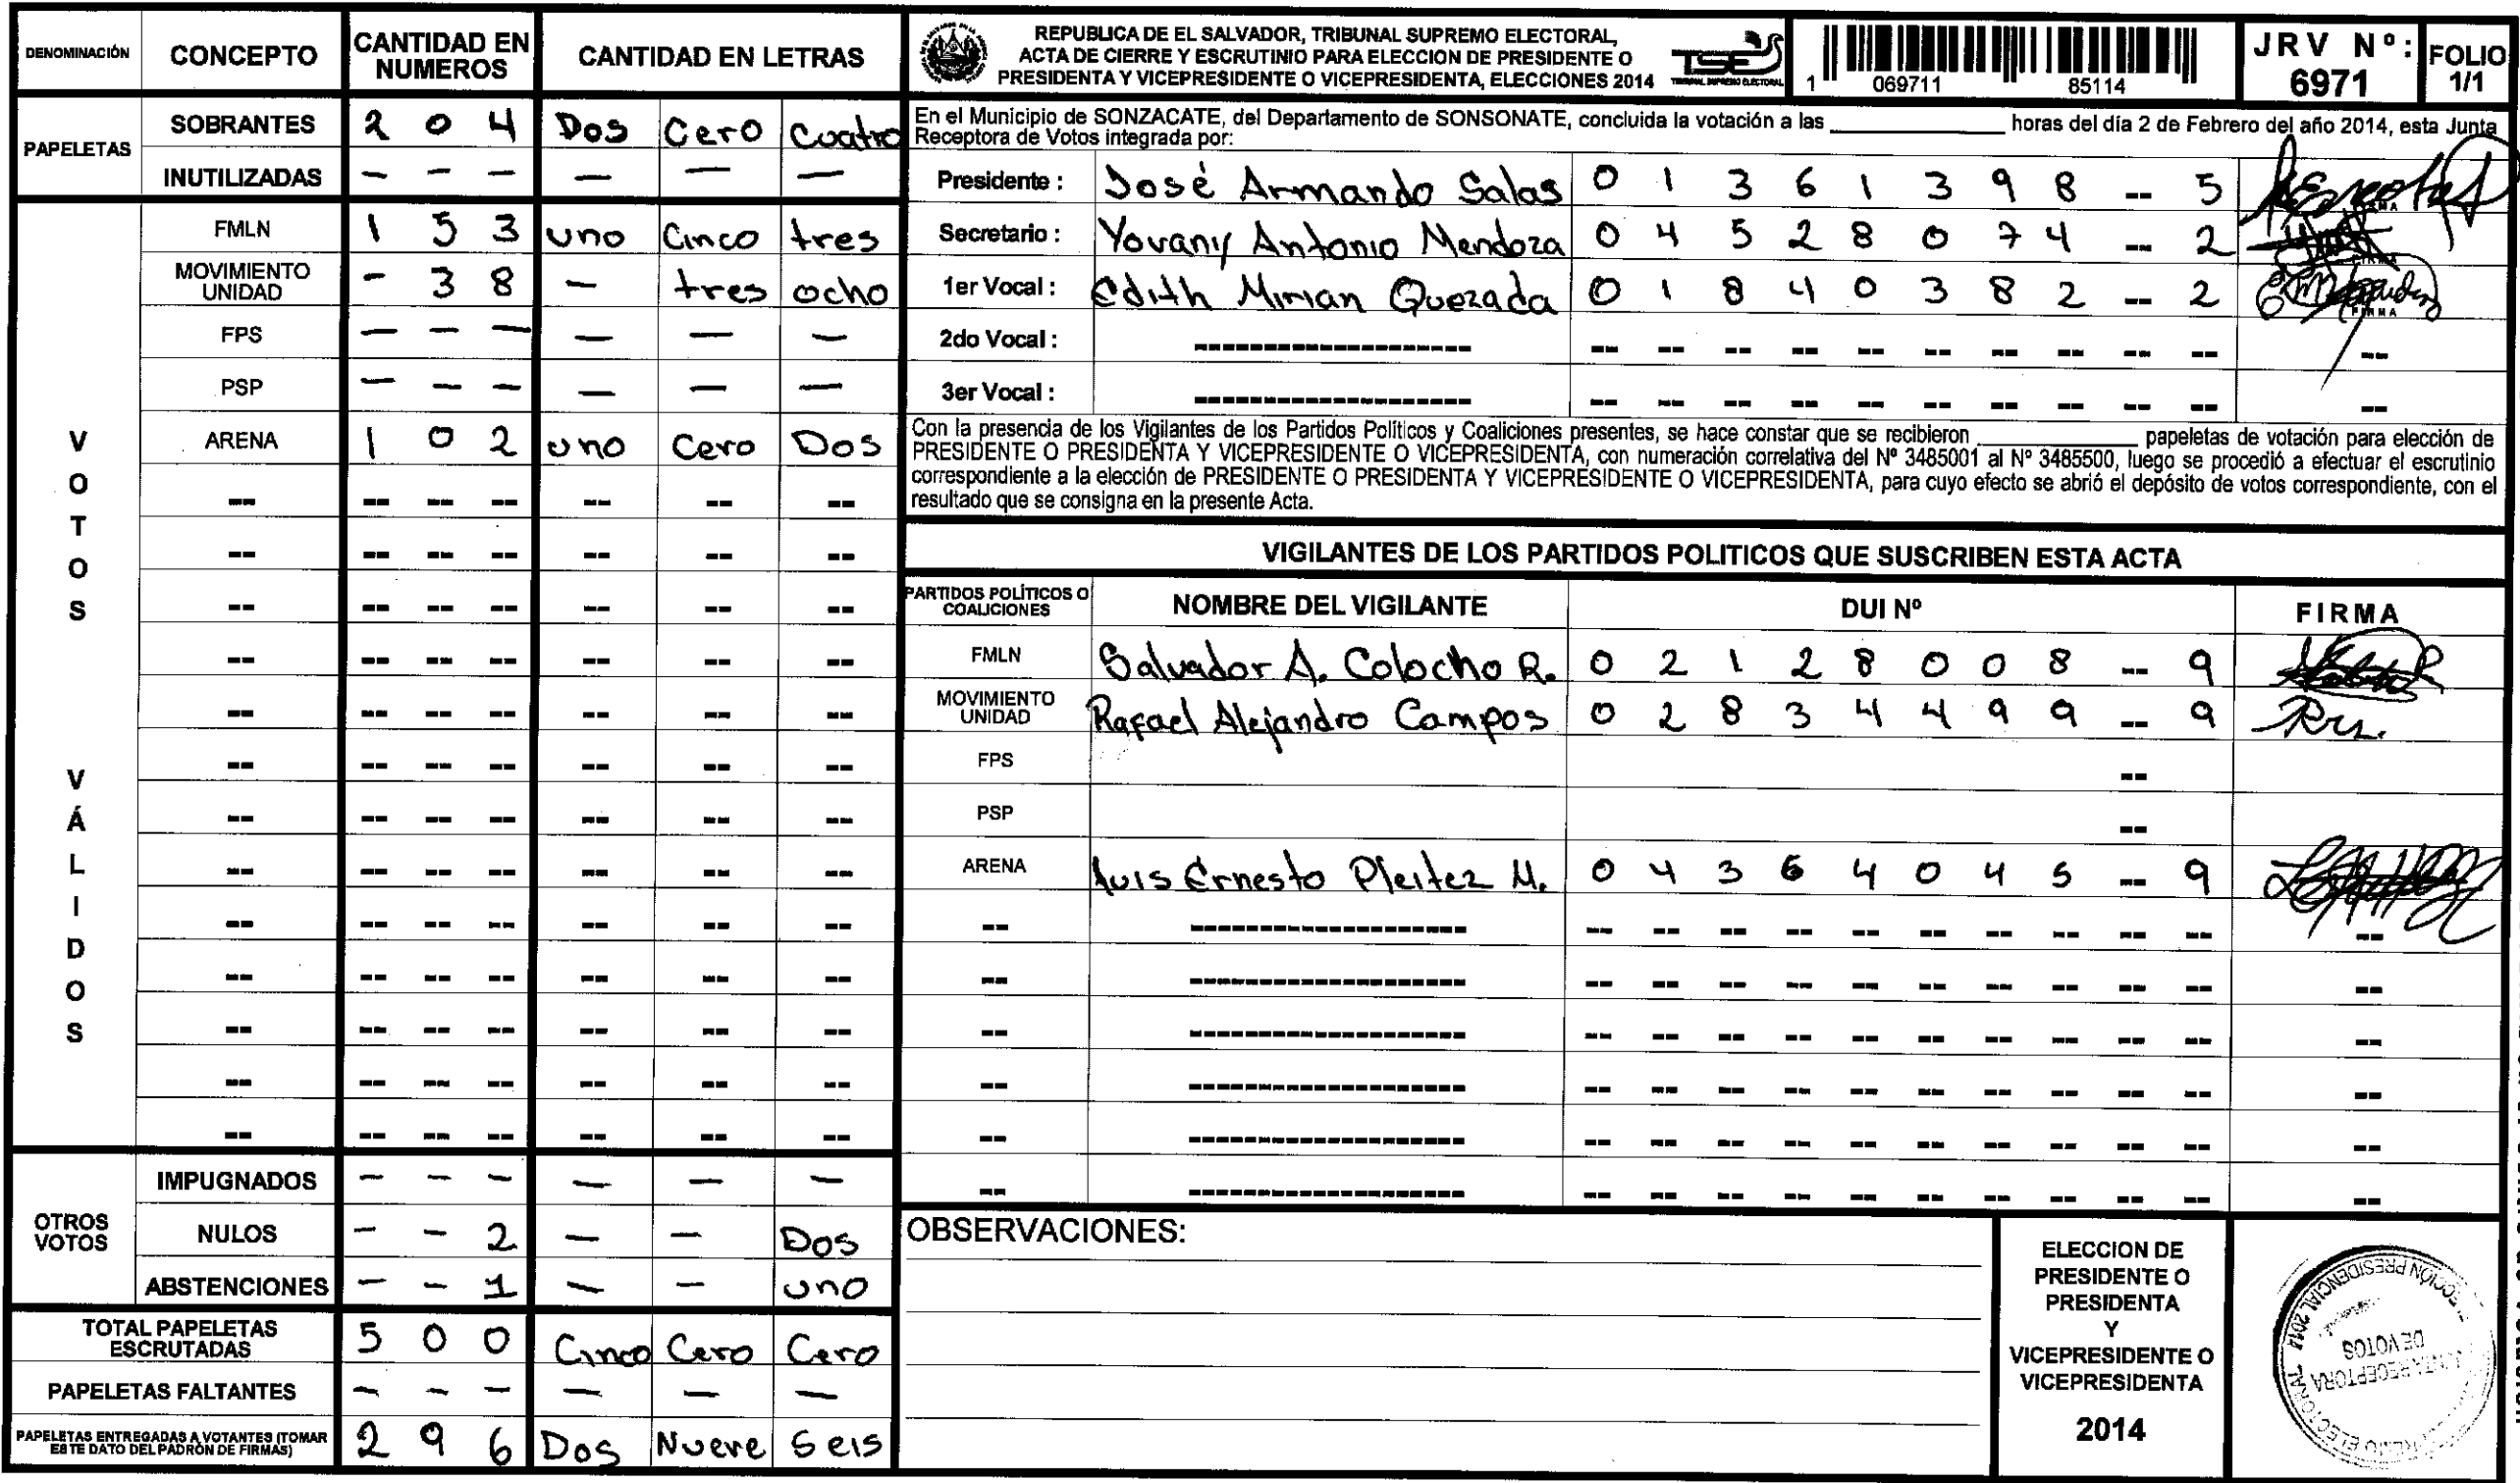 DENOMINACIÓN CONCEPTO CANTIDAD EN NUMEROS CANTIDAD EN LETRAS
PAPELETAS
SOBRANTES 2 0 4 Dos Cero Cuatro
INUTILIZADAS — — — — — —
VOTOS VÁLIDOS
FMLN 1 5 3 uno Cinco tres
MOVIMIENTO UNIDAD - 3 8 — tres ocho
FPS — — — — — —
PSP — — — — — —
ARENA 1 0 2 uno Cero Dos
-- -- -- -- -- -- --
-- -- -- -- -- -- --
-- -- -- -- -- -- --
-- -- -- -- -- -- --
-- -- -- -- -- -- --
-- -- -- -- -- -- --
-- -- -- -- -- -- --
-- -- -- -- -- -- --
-- -- -- -- -- -- --
-- -- -- -- -- -- --
-- -- -- -- -- -- --
-- -- -- -- -- -- --
-- -- -- -- -- -- --
OTROS VOTOS
IMPUGNADOS — — — — — —
NULOS — — 2 — — Dos
ABSTENCIONES — — 1 — — uno
TOTAL PAPELETAS ESCRUTADAS 5 0 0 Cinco Cero Cero
PAPELETAS FALTANTES — — — — — —
PAPELETAS ENTREGADAS A VOTANTES (TOMAR ESTE DATO DEL PADRÓN DE FIRMAS) 2 9 6 Dos Nueve Seis
REPUBLICA DE EL SALVADOR, TRIBUNAL SUPREMO ELECTORAL,
ACTA DE CIERRE Y ESCRUTINIO PARA ELECCION DE PRESIDENTE O
PRESIDENTA Y VICEPRESIDENTE O VICEPRESIDENTA, ELECCIONES 2014
TSE
TRIBUNAL SUPREMO ELECTORAL
1 069711 85114
JRV Nº: 6971
FOLIO 1/1
En el Municipio de SONZACATE, del Departamento de SONSONATE, concluida la votación a las ____________ horas del día 2 de Febrero del año 2014, esta Junta
Receptora de Votos integrada por:
Presidente : José Armando Salas 0 1 3 6 1 3 9 8 -- 5
Secretario : Yovany Antonio Mendoza 0 4 5 2 8 0 7 4 -- 2 FIRMA
1er Vocal : Edith Mirian Quezada 0 1 8 4 0 3 8 2 -- 2 FIRMA
2do Vocal : ------------------ -- -- -- -- -- -- -- -- -- -- --
3er Vocal : ------------------ -- -- -- -- -- -- -- -- -- -- --
Con la presencia de los Vigilantes de los Partidos Políticos y Coaliciones presentes, se hace constar que se recibieron ____________ papeletas de votación para elección de
PRESIDENTE O PRESIDENTA Y VICEPRESIDENTE O VICEPRESIDENTA, con numeración correlativa del Nº 3485001 al Nº 3485500, luego se procedió a efectuar el escrutinio
correspondiente a la elección de PRESIDENTE O PRESIDENTA Y VICEPRESIDENTE O VICEPRESIDENTA, para cuyo efecto se abrió el depósito de votos correspondiente, con el
resultado que se consigna en la presente Acta.
VIGILANTES DE LOS PARTIDOS POLITICOS QUE SUSCRIBEN ESTA ACTA
PARTIDOS POLÍTICOS O COALICIONES NOMBRE DEL VIGILANTE DUI Nº FIRMA
FMLN Salvador A. Colocho R. 0 2 1 2 8 0 0 8 -- 9
MOVIMIENTO UNIDAD Rafael Alejandro Campos 0 2 8 3 4 4 9 9 -- 9
FPS --
PSP --
ARENA Luis Ernesto Pleitez M. 0 4 3 6 4 0 4 5 -- 9
-- ------------------ -- -- -- -- -- -- -- -- -- -- --
-- ------------------ -- -- -- -- -- -- -- -- -- -- --
-- ------------------ -- -- -- -- -- -- -- -- -- -- --
-- ------------------ -- -- -- -- -- -- -- -- -- -- --
-- ------------------ -- -- -- -- -- -- -- -- -- -- --
-- ------------------ -- -- -- -- -- -- -- -- -- -- --
OBSERVACIONES:
ELECCION DE
PRESIDENTE O
PRESIDENTA
Y
VICEPRESIDENTE O
VICEPRESIDENTA
2014
JUNTA RECEPTORA
DE VOTOS
ELECCIÓN PRESIDENCIAL 2014